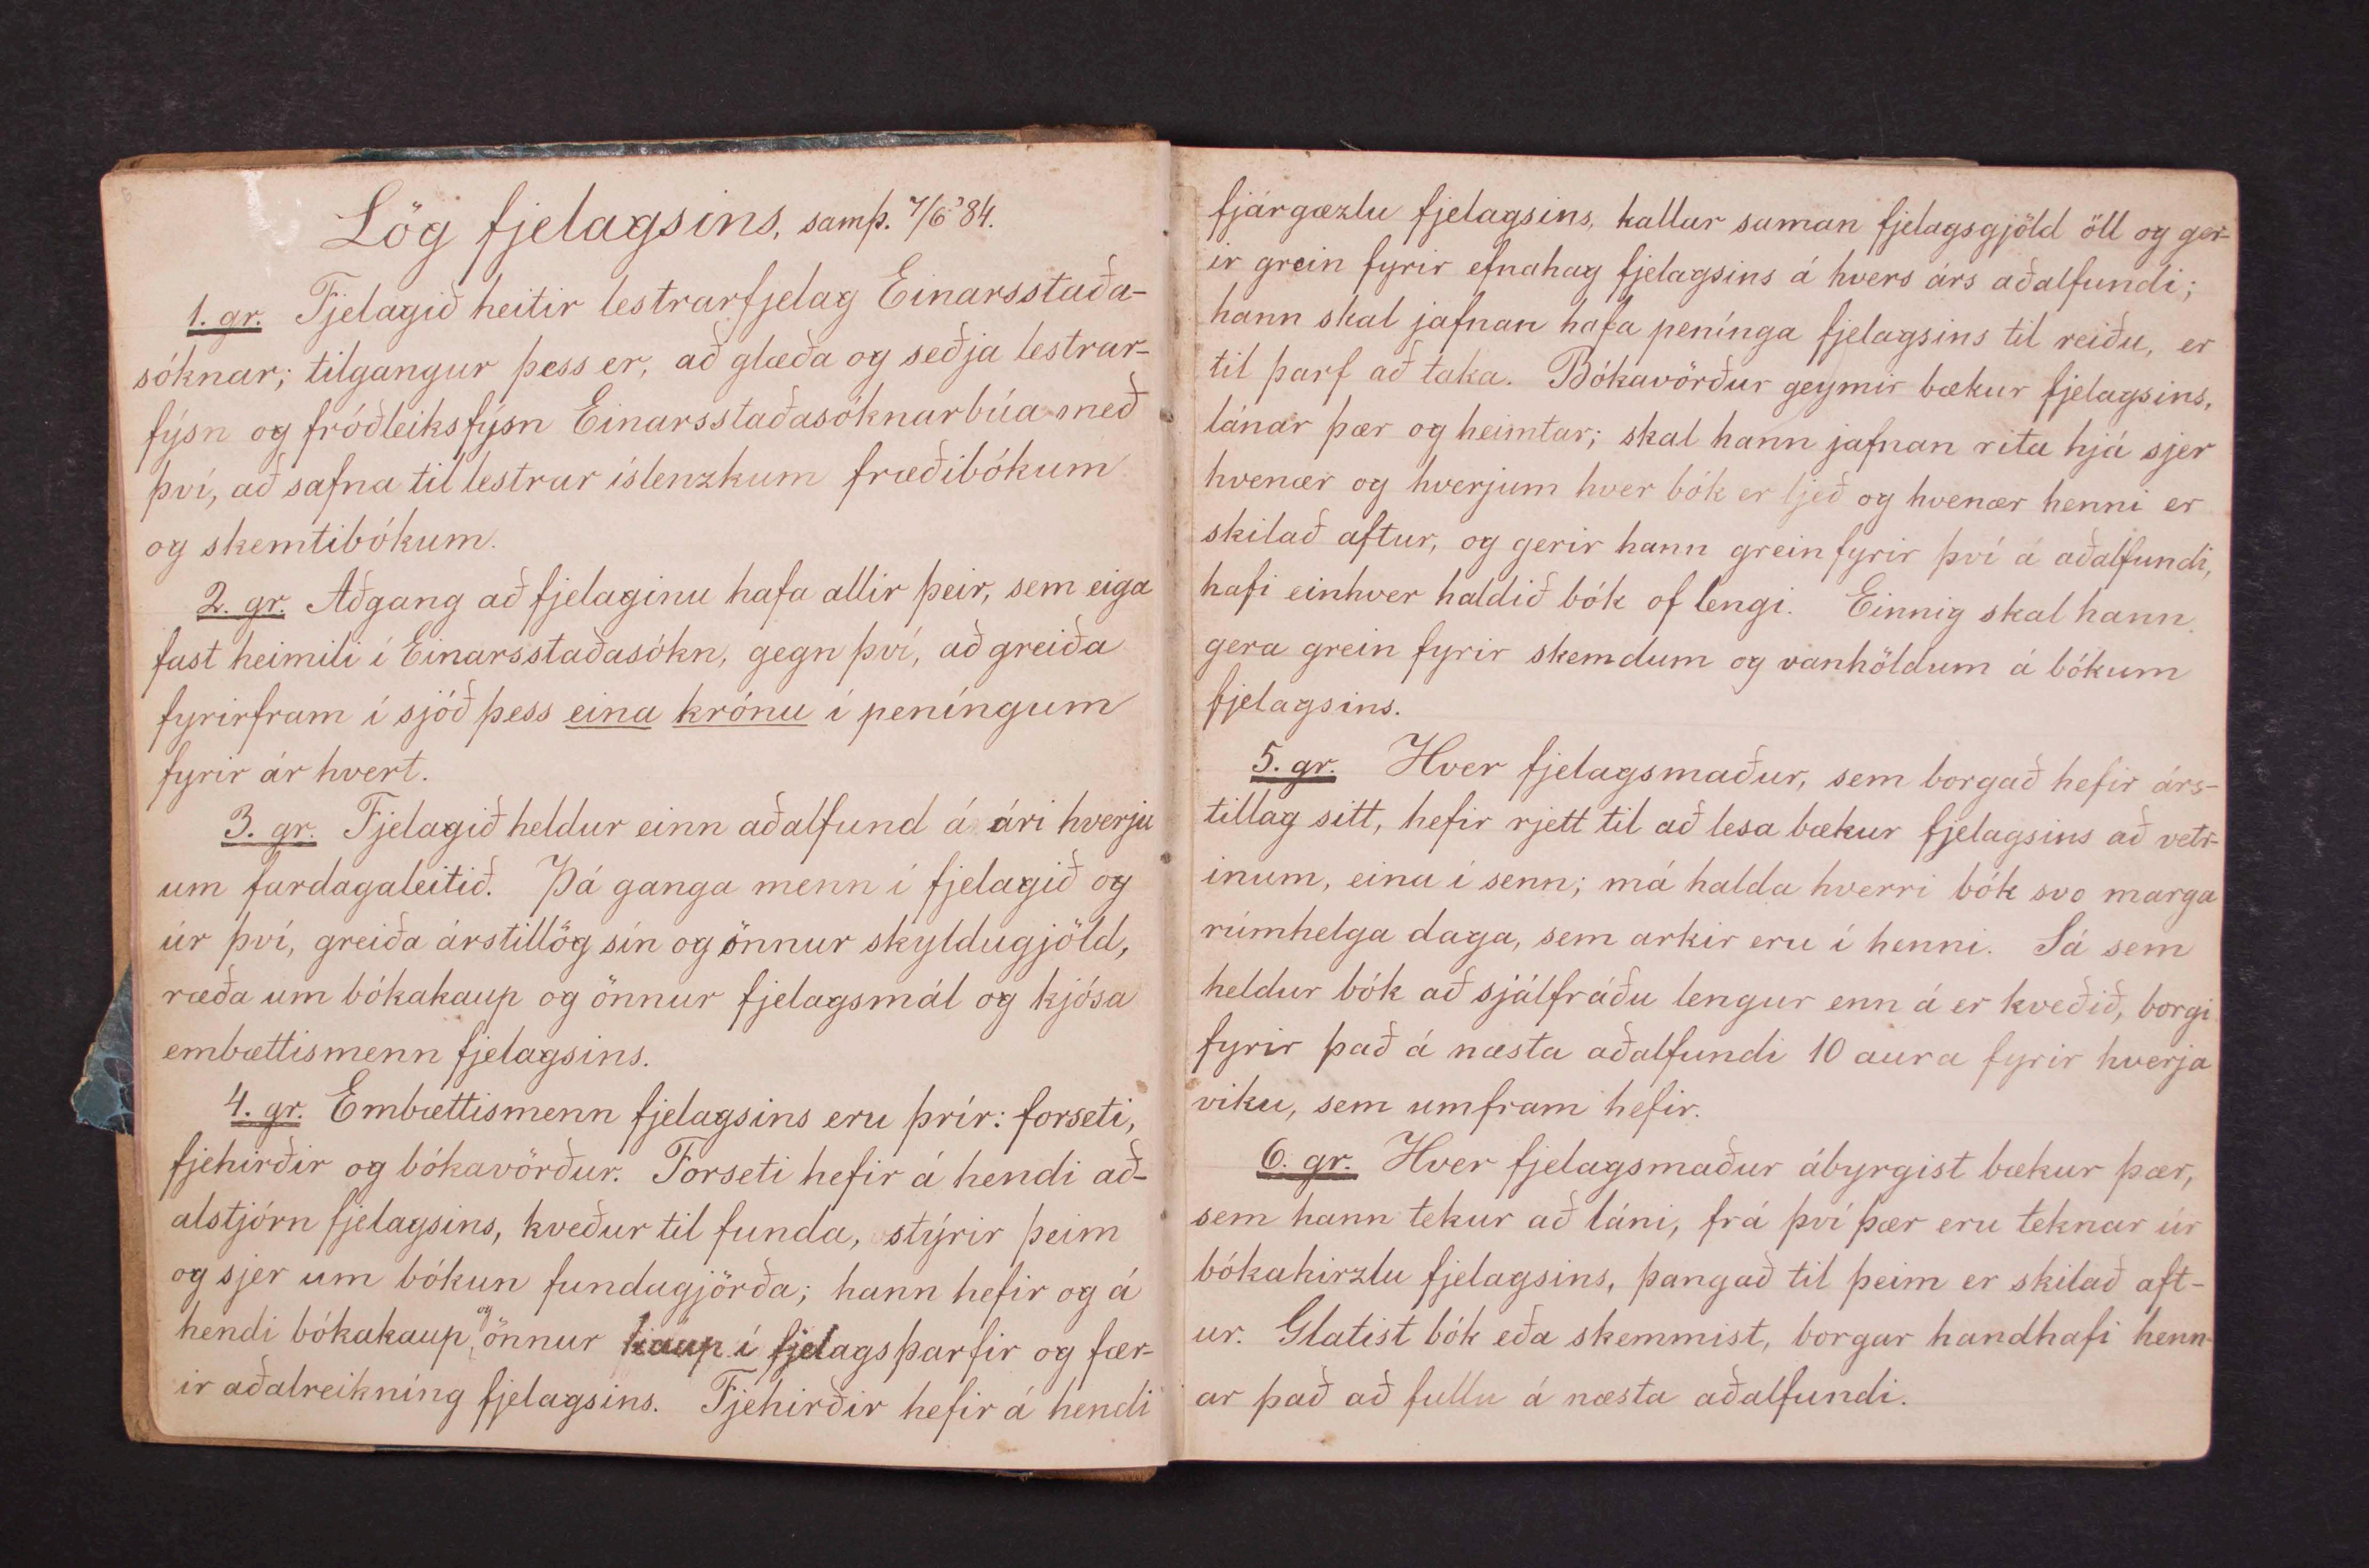 Lög fjelagsins, samþ. 7/6 '84.
1. gr. Fjelagið heitir lestrarfjelag Einarsstaða-
sóknar; tilgangur þess er, að glæða og seðja lestrar-
fýsn og fróðleiksfýsn Einarsstaðasóknarbúa með
því, að safna til lestrar íslenzkum fræðibókum
og skemtibókum.
2. gr. Aðgang að fjelaginu hafa allir þeir, sem eiga
fast heimili í Einarsstaðasókn, gegn því, að greiða
fyrirfram í sjóð þess eina krónu í peníngum
fyrir ár hvert.
3. gr. Fjelagið heldur einn aðalfund á ári hverju
um fardagaleitið. Þá ganga menn í fjelagið og
úr því, greiða árstillög sín og önnur skyldugjöld,
ræða um bókakaup og önnur fjelagsmál og kjósa
embættismenn fjelagsins.
4. gr. Embættismenn fjelagsins eru þrír: forseti,
fjehirðir og bókavörður. Forseti hefir á hendi að-
alstjórn fjelagsins, kveður til funda, stýrir þeim
og sjer um bókun fundagjörða; hann hefir og á
hendi bókakaup, og önnur kaup í fjelagsþarfir og fær-
ir aðalreikníng fjelagsins. Fjehirðir hefir á hendi
fjárgæzlu fjelagsins, kallar saman fjelagsgjöld öll og ger-
ir grein fyrir efnahag fjelagsins á hvers árs aðalfundi;
hann skal jafnan hafa penínga fjelagsins til reiðu, er
til þarf að taka. Bókavörður geymir bækur fjelagsins,
lánar þær og heimtar; skal hann jafnan rita hjá sjer
hvenær og hverjum hver bók er ljeð og hvenær henni er
skilað aftur, og gerir hann grein fyrir því á aðalfundi,
hafi einhver haldið bók of lengi. Einnig skal hann
gera grein fyrir skemdum og vanhöldum á bókum
fjelagsins.
5. gr. Hver fjelagsmaður, sem borgað hefir árs-
tillag sitt, hefir rjett til að lesa bækur fjelagsins að vetr-
inum, eina í senn; má halda hverri bók svo marga
rúmhelga daga, sem arkir eru í henni. Sá sem
heldur bók að sjálfráðu lengur enn á er kveðið, borgi
fyrir það á næsta aðalfundi 10 aura fyrir hverja
viku, sem umfram hefir.
6. gr. Hver fjelagsmaður ábyrgist bækur þær,
sem hann tekur að láni, frá því þær eru teknar úr
bókahirzlu fjelagsins, þangað til þeim er skilað aft-
ur. Glatist bók eða skemmist, borgar handhafi henn-
ar það að fullu á næsta aðalfundi.